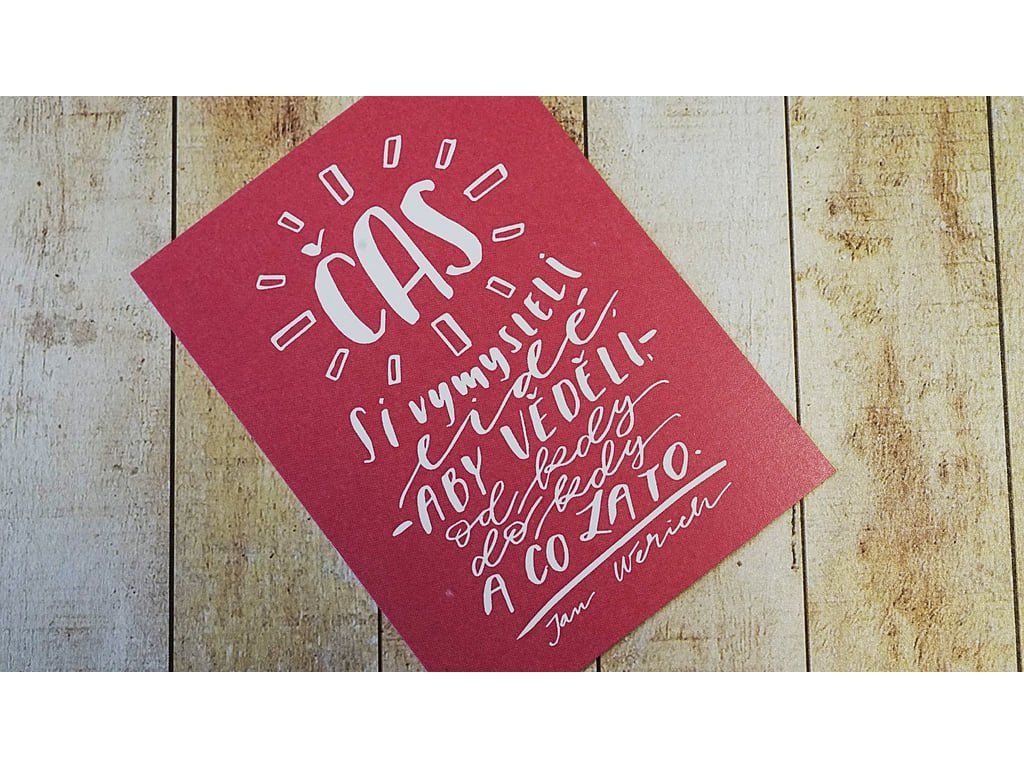 ČAS
SI VYMYSLELI
lidé,
-ABY VĚDĚLI,-
od kdy
do kdy
A CO ZA TO.
Jan Werich